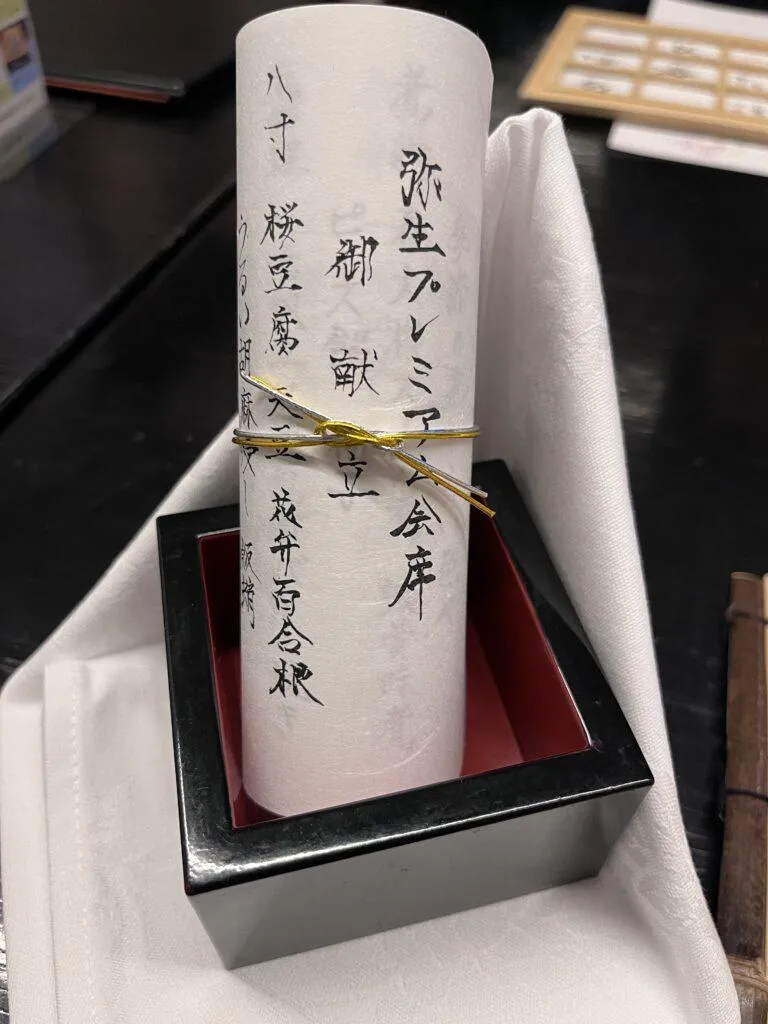 弥生プレミアム会席
御献立
八寸
桜豆腐 天豆 花弁百合根
うるい胡麻